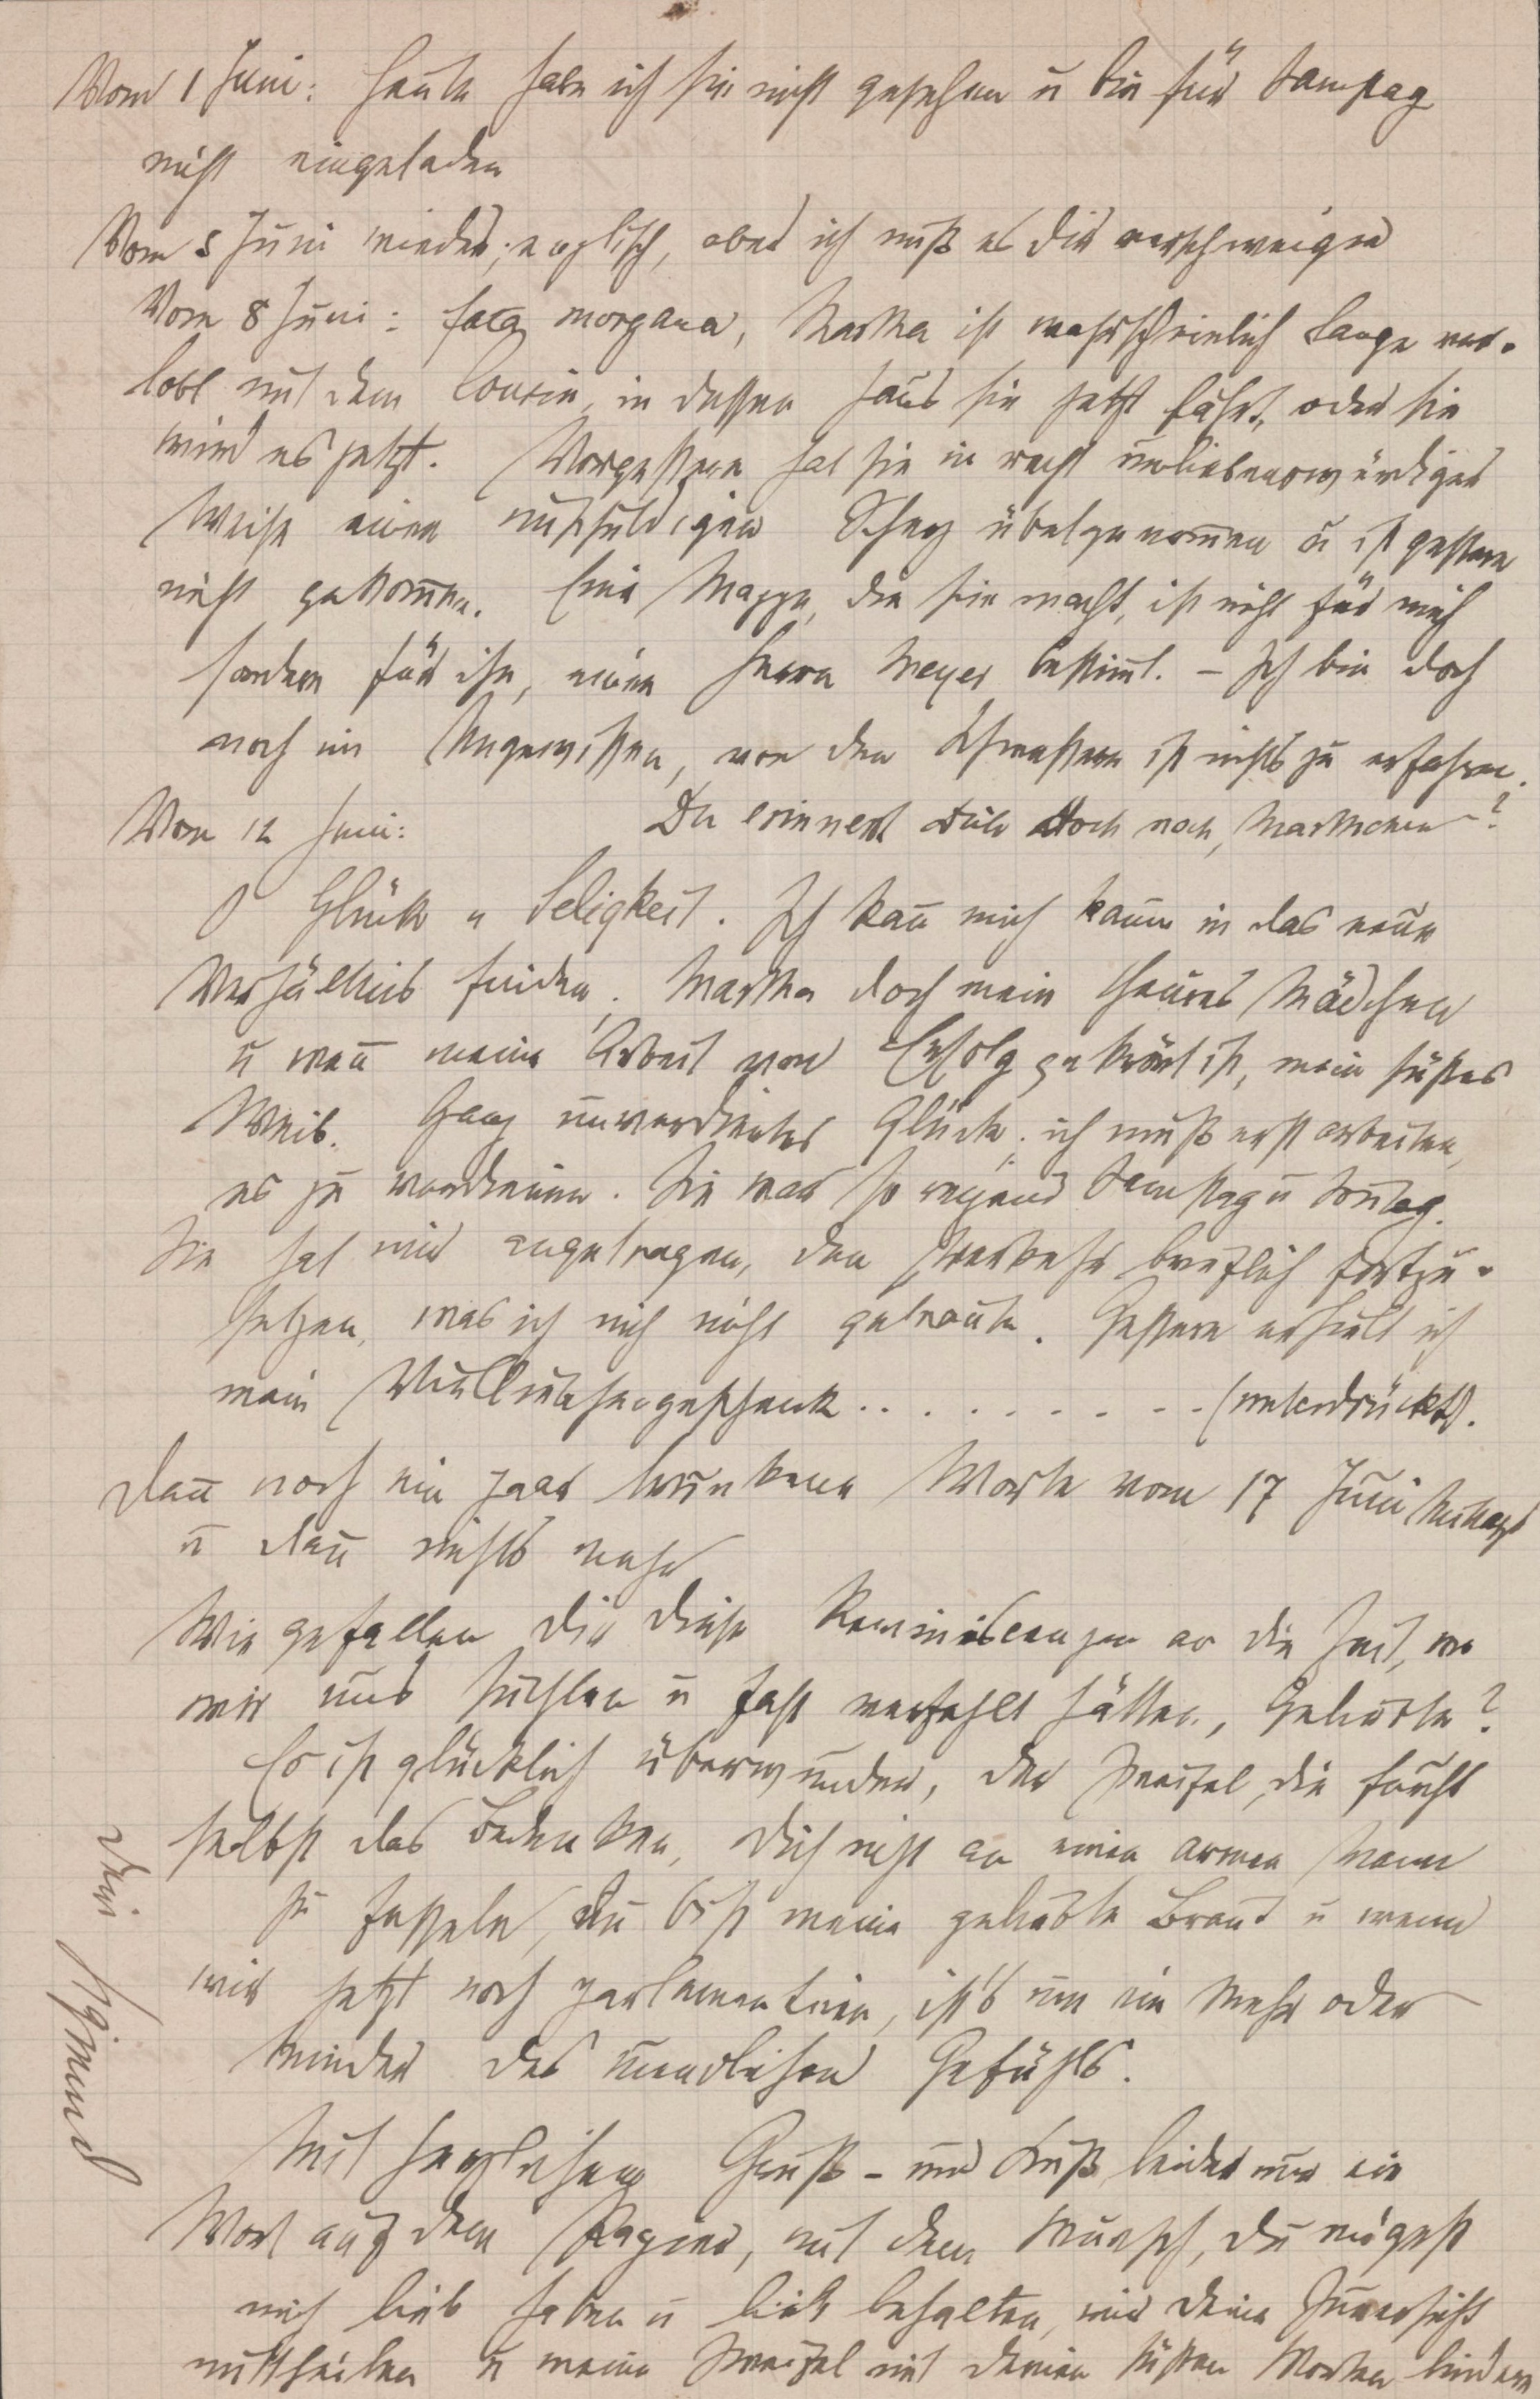 Vom 1 Juni: Heute habe ich sie nicht gesehen u bin für Samstag
nicht eingeladen
Vom 5 Juni wieder; englisch, aber ich muß es Dir verschweigen
Vom 8 Juni: fata morgana, Martha ist wahrscheinlich lange ver-
lobt mit dem Cousin, in dessen Haus sie jetzt fährt, oder sie
wird es jetzt. Vorgestern hat sie in recht unliebenswürdiger
Weise einen unschuldigen Scherz übelgenom̄en u ist gestern
nicht gekom̄en. Eine Mappe, die sie macht, ist nicht für mich
sondern für ihn, einen Herrn Meyer bestim̄t. – Ich bin doch
noch im Ungewissen, von den Schwestern ist nichts zu erfahren.
Vom 12 Juni: Du erinnerst Dich doch noch, Marthchen?
O Glück u Seligkeit. Ich kan̄ mich kaum in das neue
Verhältnis finden, Martha doch mein theures Mädchen
u wen̄ meine Arbeit von Erfolg gekrönt ist, mein süßes
Weib. Ganz unverdientes Glück; ich muß erst arbeiten,
es zu verdienen. Sie war so reizend Samstag u Son̄tag.
Sie hat mir angetragen, den Verkehr brieflich fortzu-
setzen, was ich mich nicht getraute. Gestern erhielt ich
mein Vielliebchengeschenk . . . . . . . . . . (unterdrückt).
Dan̄ noch ein paar trunkene Worte vom 17 Juni Mittags
u dan̄ nichts mehr
Wie gefallen Dir diese Reminiscenzen an die Zeit, wo
wir uns suchten u fast verfehlt hätten, Geliebte?
Es ist glücklich überwunden, der Zweifel, die Furcht
selbst das Bedenken, Dich nicht an einen armen Mann
zu fesseln, Du bist meine geliebte Braut u wenn
wir jetzt noch parlamentiren, ist's um ein Mehr oder
Minder des unendlichen Gefühls.
Mit herzlichem Gruß - und Kuß, leider nur ein
Wort auf dem Papier, mit dem Wunsch, Du mögest
mich lieb haben u lieb behalten, mir Deine Zuversicht
mittheilen u meine Zweifel mit Deinen süßen Worten lindern
Dein Sigmund